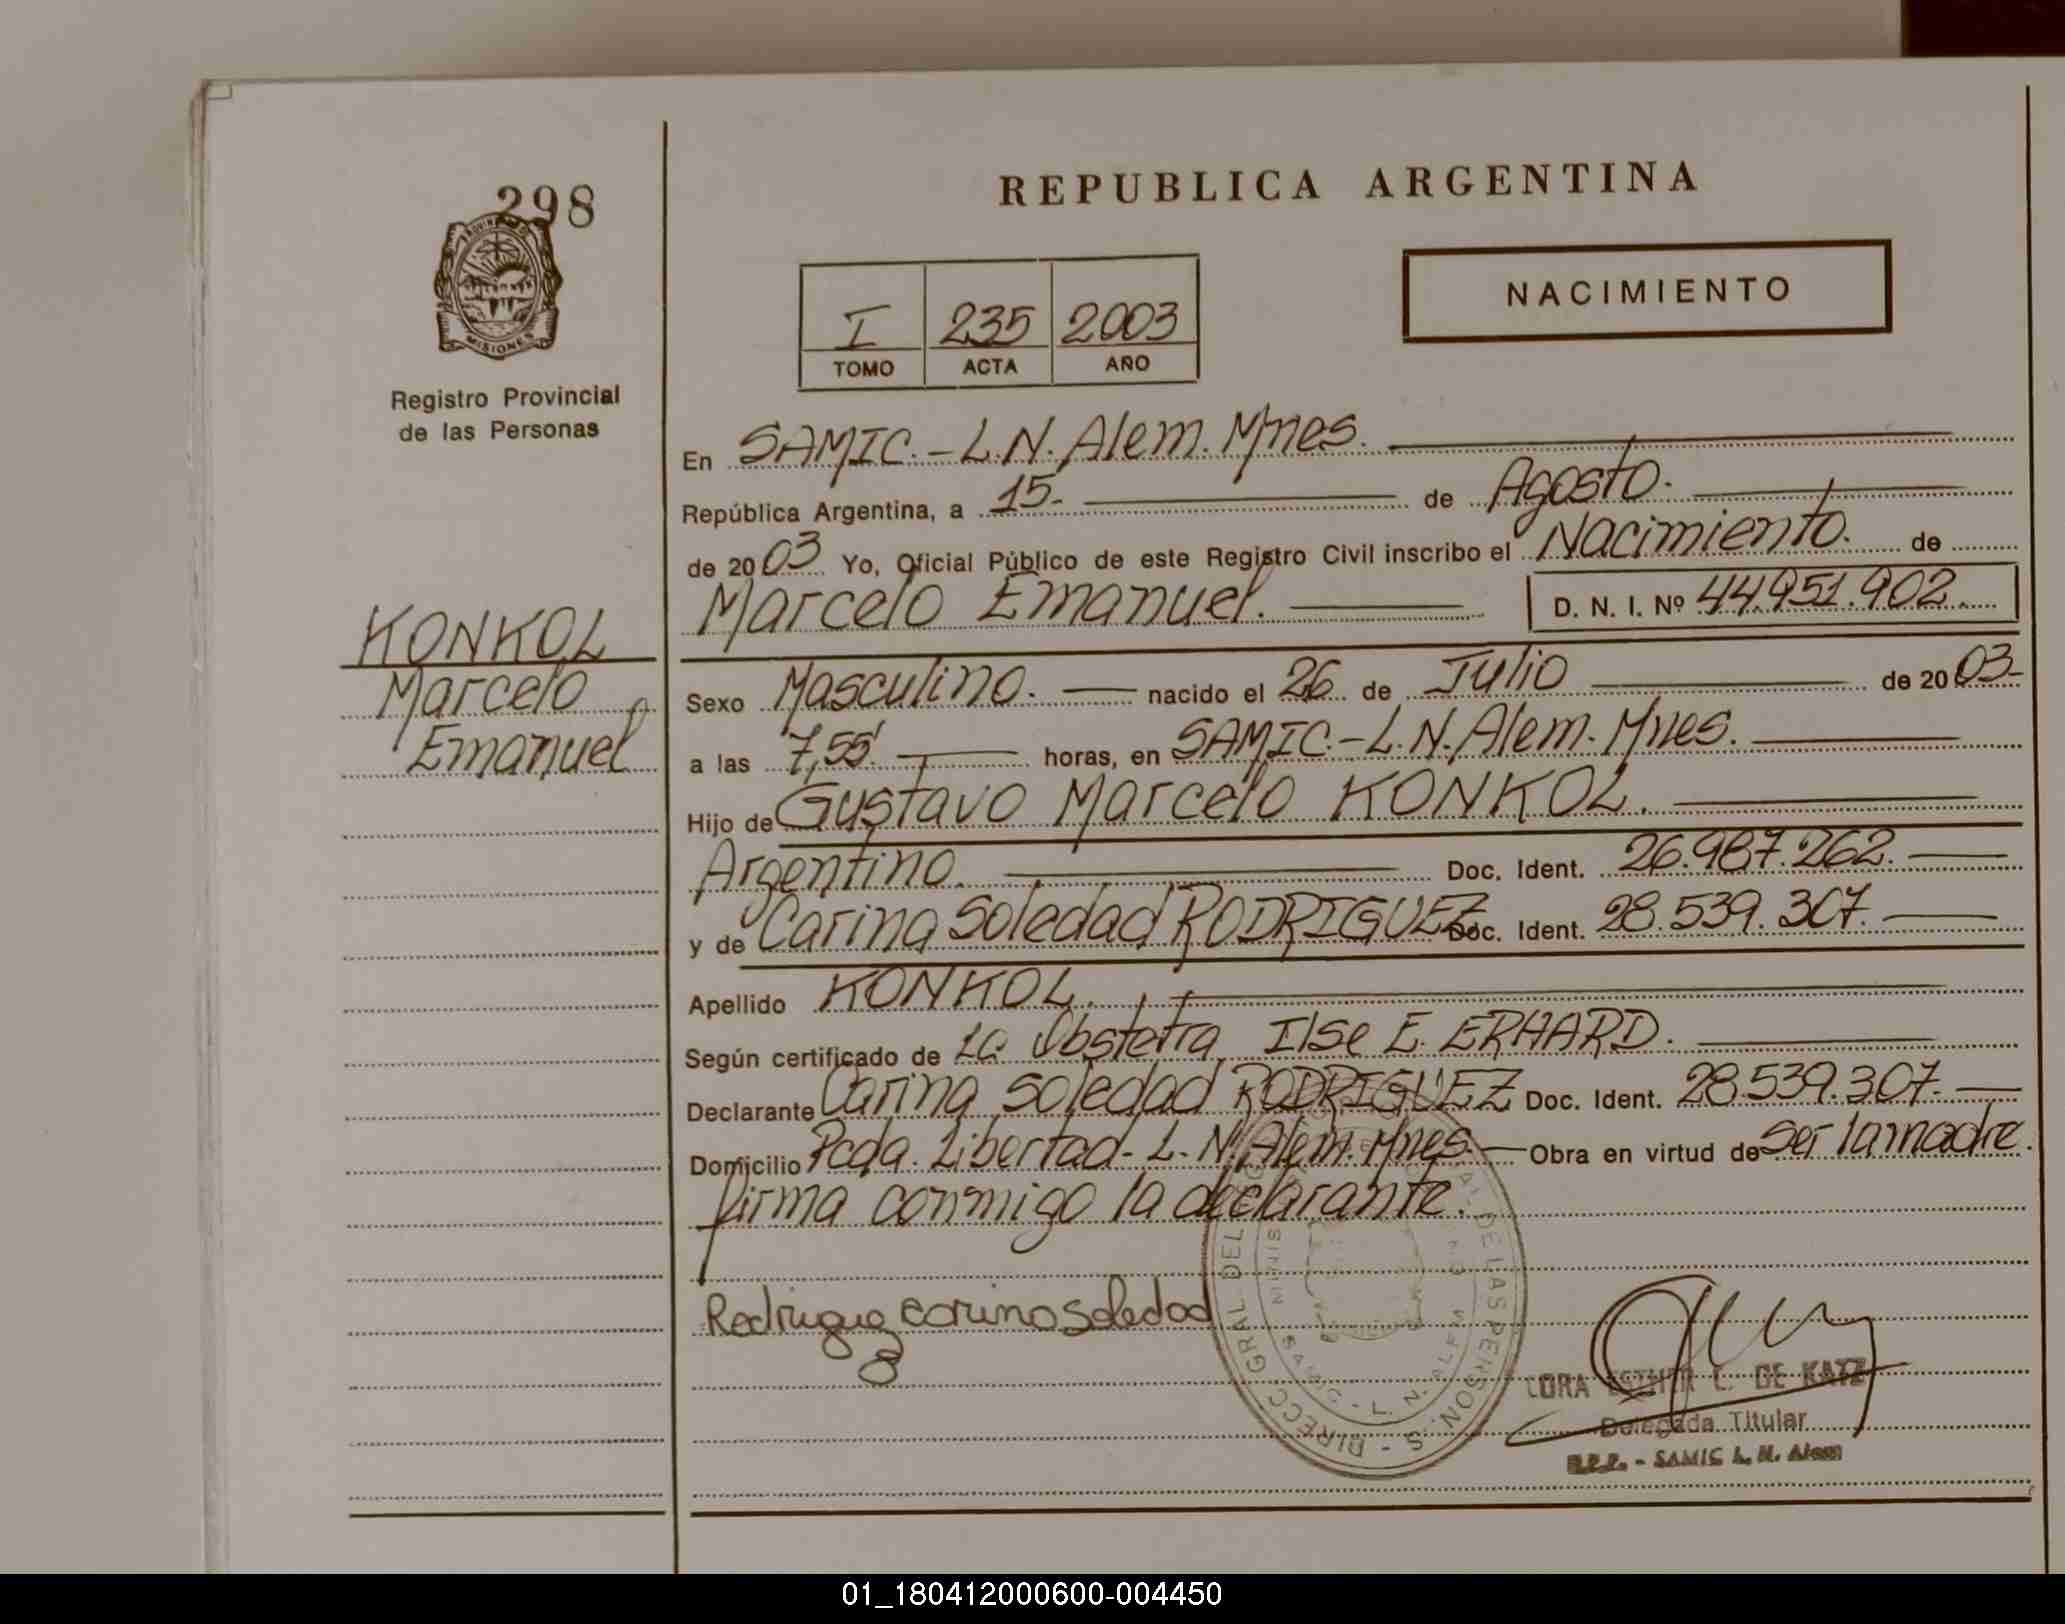 298
PROVINCIA DE
MISIONES
Registro Provincial
de las Personas
KONKOL
Marcelo
Emanuel
REPUBLICA ARGENTINA
I 235 2003
TOMO ACTA AÑO
NACIMIENTO
En SAMIC.-L.N.Alem.Mnes.
República Argentina, a 15.- de Agosto.
de 2003 Yo, Oficial Público de este Registro Civil inscribo el Nacimiento. de
Marcelo Emanuel. D. N. I. Nº 44.951.902.
Sexo Masculino. nacido el 26 de Julio de 2003-
a las 7,55' horas, en SAMIC.-L.N.Alem.Mnes.
Hijo de Gustavo Marcelo KONKOL.
Argentino. Doc. Ident. 26.987.262.
y de Carina Soledad RODRIGUEZ Doc. Ident. 28.539.307.
Apellido KONKOL.
Según certificado de La Obstetra Ilse E. ERHARD.
Declarante Carina Soledad RODRIGUEZ Doc. Ident. 28.539.307.
Domicilio Pcda. Libertad-L.N.Alem.Mnes. Obra en virtud de ser la madre.
firma conmigo la declarante.
Rodriguez carina soledad
DIRECC GRAL. DEL DE LAS PERSON. S -
SAMIC - L. N. ALEM
CORA ESTHER L. DE KATZ
Delegada Titular
R.P.P. - SAMIC L. N. Alem
01_180412000600-004450